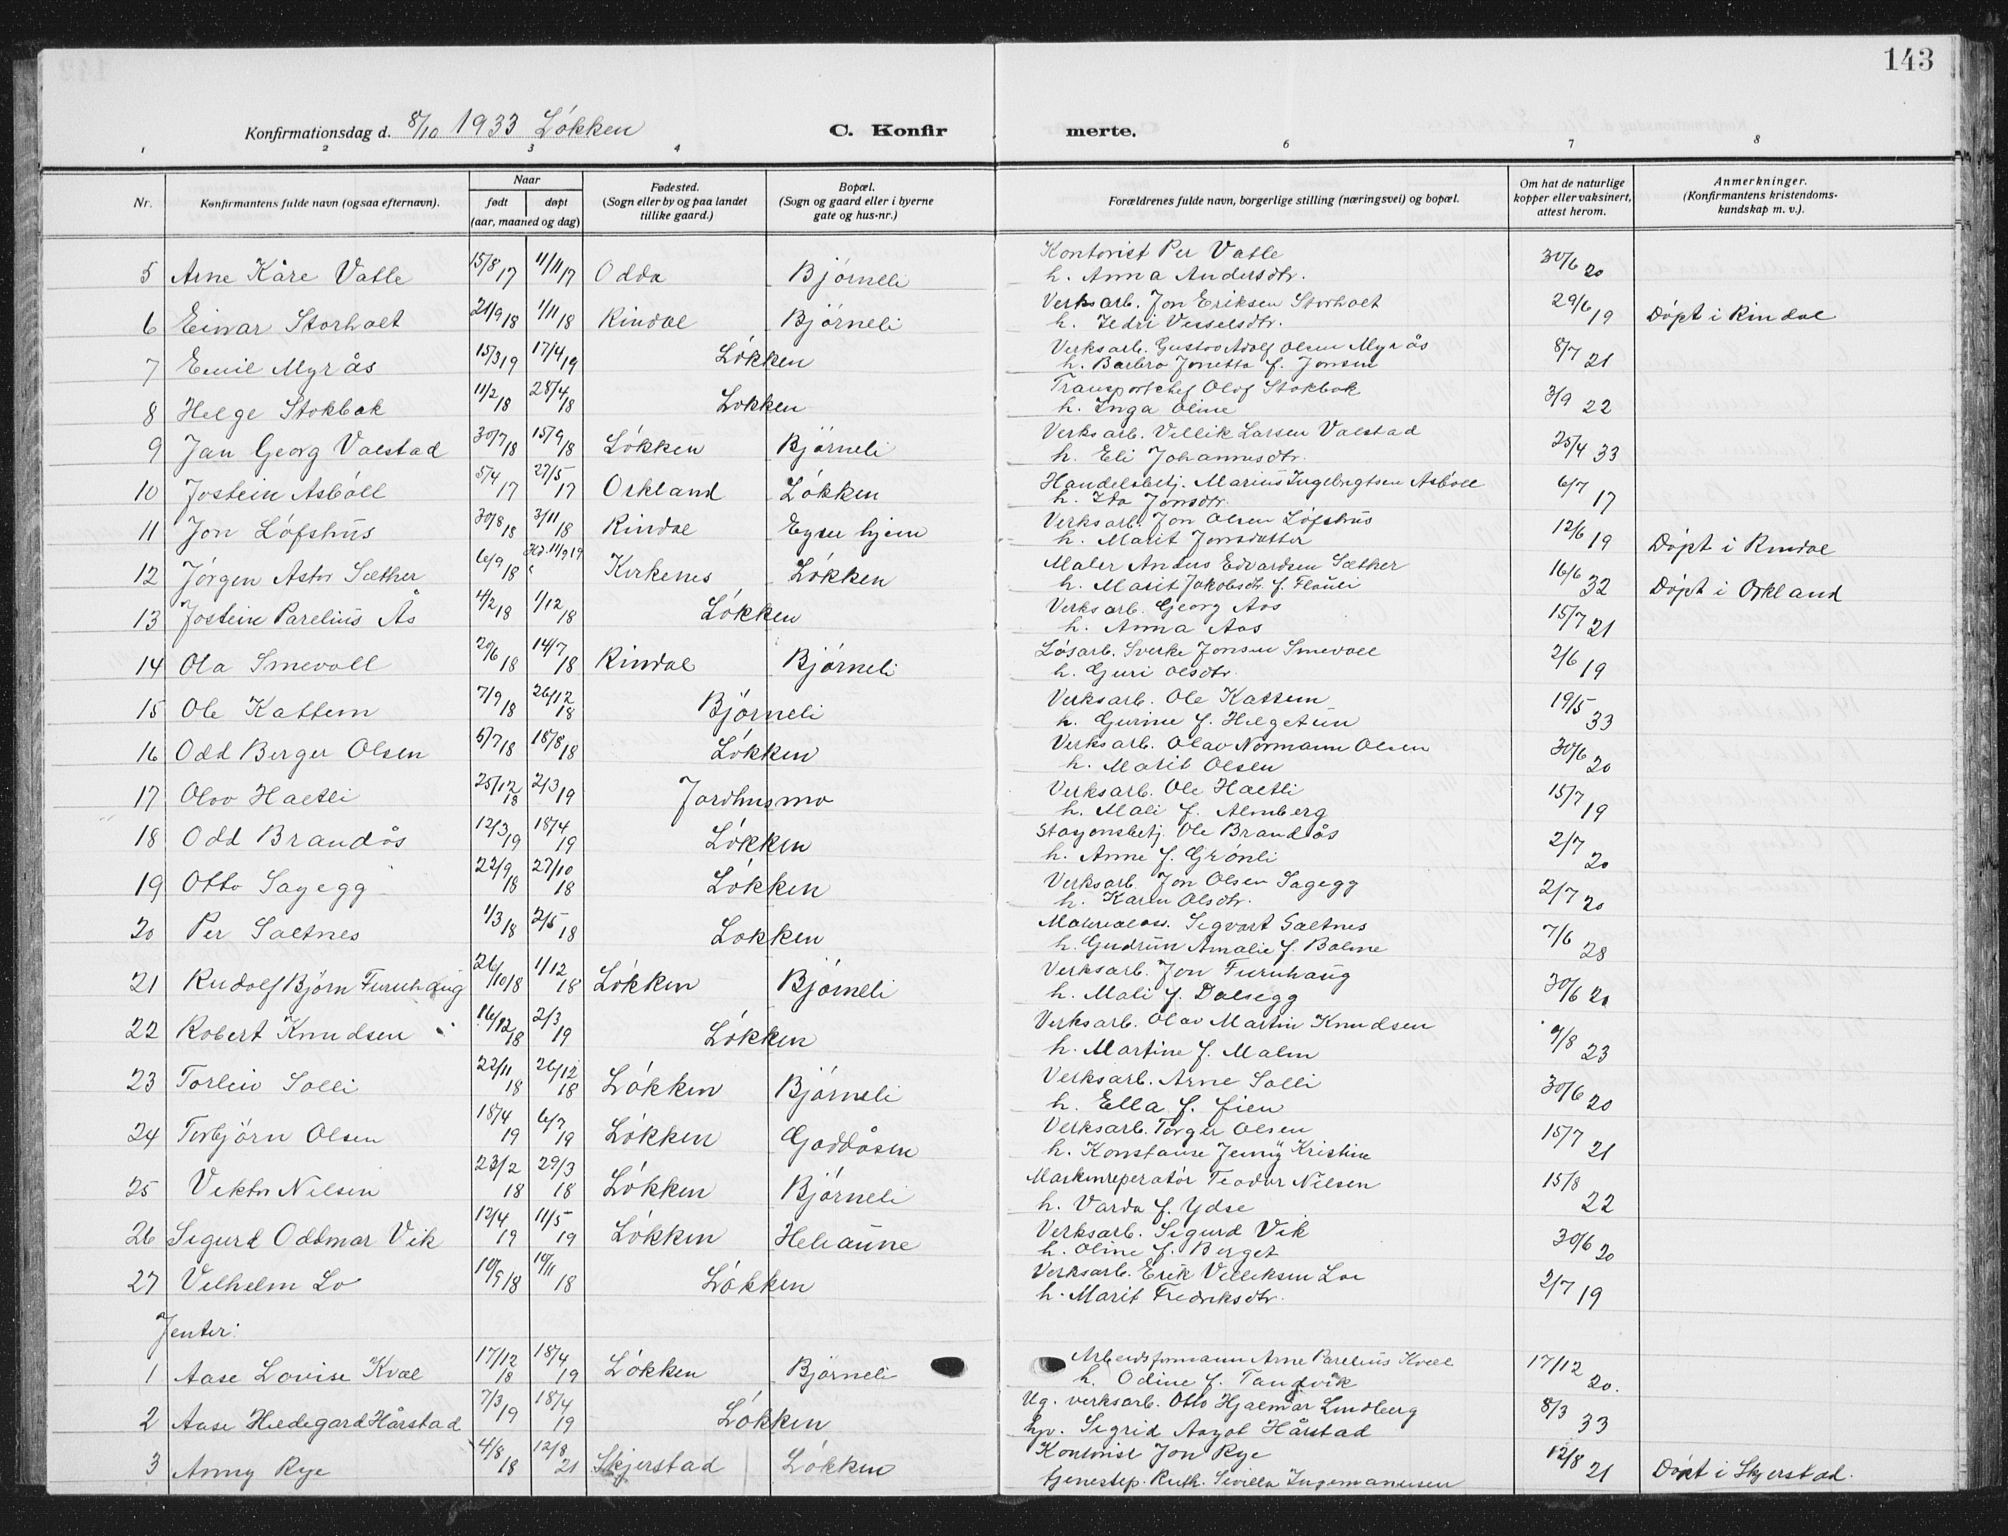 143
Konfirmationsdag d. 8/10 1933 Løkken C. Konfir merte.
1 2 3 4 6 7 8
Nr. Konfirmantens fulde navn (ogsaa efternavn). Naar født døpt (aar, maaned og dag) Fødested. (Sogn eller by og paa landet tillike gaard.) Bopæl. (Sogn og gaard eller i byerne gate og hus-nr.) Forældrenes fulde navn, borgerlige stilling (næringsvei) og bopæl. Om hat de naturlige kopper eller vaksinert, attest herom. Anmerkninger. (Konfirmantens kristendoms-kundskap m. v.).
5 Arne Kåre Vatle 15/8 17 11/11 17 Odda Bjørneli Kontorist Per Vatle 30/6 20
h. Anna Andersdtr.
6 Einar Storholt 21/9 18 1/11 18 Rindal Bjørneli Verksarb. Jon Eriksen Storholt 29/6 19 Døpt i Rindal
h. Jedri Vesselsdtr.
7 Emil Myrås 15/3 19 17/4 19 Løkken Verksarb. Gustav Adolf Olsen Myrås 8/7 21
h. Barbro Jonetta f. Jonsen
8 Helge Stokbak 11/2 18 28/4 18 Løkken Transportchef Olof Stokbak 3/9 22
h. Inga Oline
9 Jan Georg Valstad 30/7 18 15/9 18 Løkken Bjørneli Verksarb. Villik Larsen Valstad 25/4 33
h. Eli Johannesdtr.
10 Jostein Asbøll 5/4 17 27/5 17 Orkland Løkken Handelsbetj. Marius Ingebrigtsen Asbøll 6/7 17
h. Ida Jonsdtr.
11 Jon Løfshus 30/8 18 3/11 18 Rindal Egen hjem Verksarb. Jon Olsen Løfshus 12/6 19 Døpt i Rindal
h. Marit Jonsdatter
12 Jørgen Astor Sæther 6/9 18 Hd. 11/9 19 Kirkenes Løkken Maler Anders Edvardsen Sæther 16/6 32 Døpt i Orkland
h. Marit Jakobsdtr. f. Flåen
13 Jostein Parelius Ås 4/2 18 1/12 18 Løkken Verksarb. Georg Aas 15/7 21
h. Anna Aas
14 Ola Smevoll 20/6 18 14/7 18 Rindal Bjørneli Løsarb. Sverke Jonsen Smevoll 2/6 19
h. Guri Olsdtr.
15 Ole Kattem 7/9 18 26/12 18 Bjørneli Verksarb. Ole Kattem 19/5 33
h. Gurine f. Helgetun
16 Odd Berger Olsen 5/7 18 18/8 18 Løkken Verksarb. Olav Normann Olsen 30/6 20
h. Marit Olsen
17 Olav Haltli 25/12 18 2/3 19 Jordhusmo Verksarb. Ole Haltli 15/7 19
h. Mali f. Almberg
18 Odd Brandås 12/3 19 18/4 19 Løkken Stasjonsbetj. Ole Brandås 2/7 20
h. Anne f. Grønli
19 Otto Sagegg 22/9 18 27/10 18 Løkken Verksarb. Jon Olsen Sagegg 2/7 20
h. Karen Olsdtr.
20 Per Saltnes 1/3 18 2/5 18 Løkken Materialass. Sigvart Saltnes 7/6 28
h. Gudrun Amalie f. Bolme
21 Rudolf Bjørn Furuhaug 26/10 18 1/12 18 Løkken Bjørneli Verksarb. Jon Furuhaug 30/6 20
h. Mali f. Dalsegg
22 Robert Knudsen 16/12 18 2/3 19 Løkken Verksarb. Olav Martin Knudsen 9/8 23
h. Martine f. Malm
23 Torleiv Solli 22/11 18 26/12 18 Løkken Bjørneli Verksarb. Arne Solli 30/6 20
h. Ella f. Lien
24 Torbjørn Olsen 18/4 19 6/7 19 Løkken Goddåsen Verksarb. Torger Olsen 15/7 21
h. Konstanse Jenny Kristine
25 Viktor Nilsen 23/2 18 29/3 18 Løkken Bjørneli Maskinreperatør Teodor Nilsen 15/8 22
h. Varda f. Ydse
26 Sigurd Oddmar Vik 12/4 19 11/5 19 Løkken Heliaune Verksarb. Sigurd Vik 30/6 20
h. Oline f. Berget
27 Vilhelm Lo 10/9 18 10/11 18 Løkken Verksarb. Erik Villiksen Loe 2/7 19
h. Marit Fredriksdtr.
Jenter:
1 Aase Lovise Kvål 17/12 18 18/4 19 Løkken Bjørneli Arbeidsformann Arne Parelius Kvål 17/12 20.
h. Odine f. Tandvik
2 Aase Hildegard Hårstad 7/3 19 18/4 19 Løkken Ug. verksarb. Otto Hjalmar Lindberg 8/3 33
Sigrid Aagot Hårstad
3 Anny Rye 4/8 18 12/8 21 Skjerstad Løkken Kontorist Jon Rye 12/8 21 Døpt i Skjerstad.
tjenestep. Ruth Sevilla Ingemansen